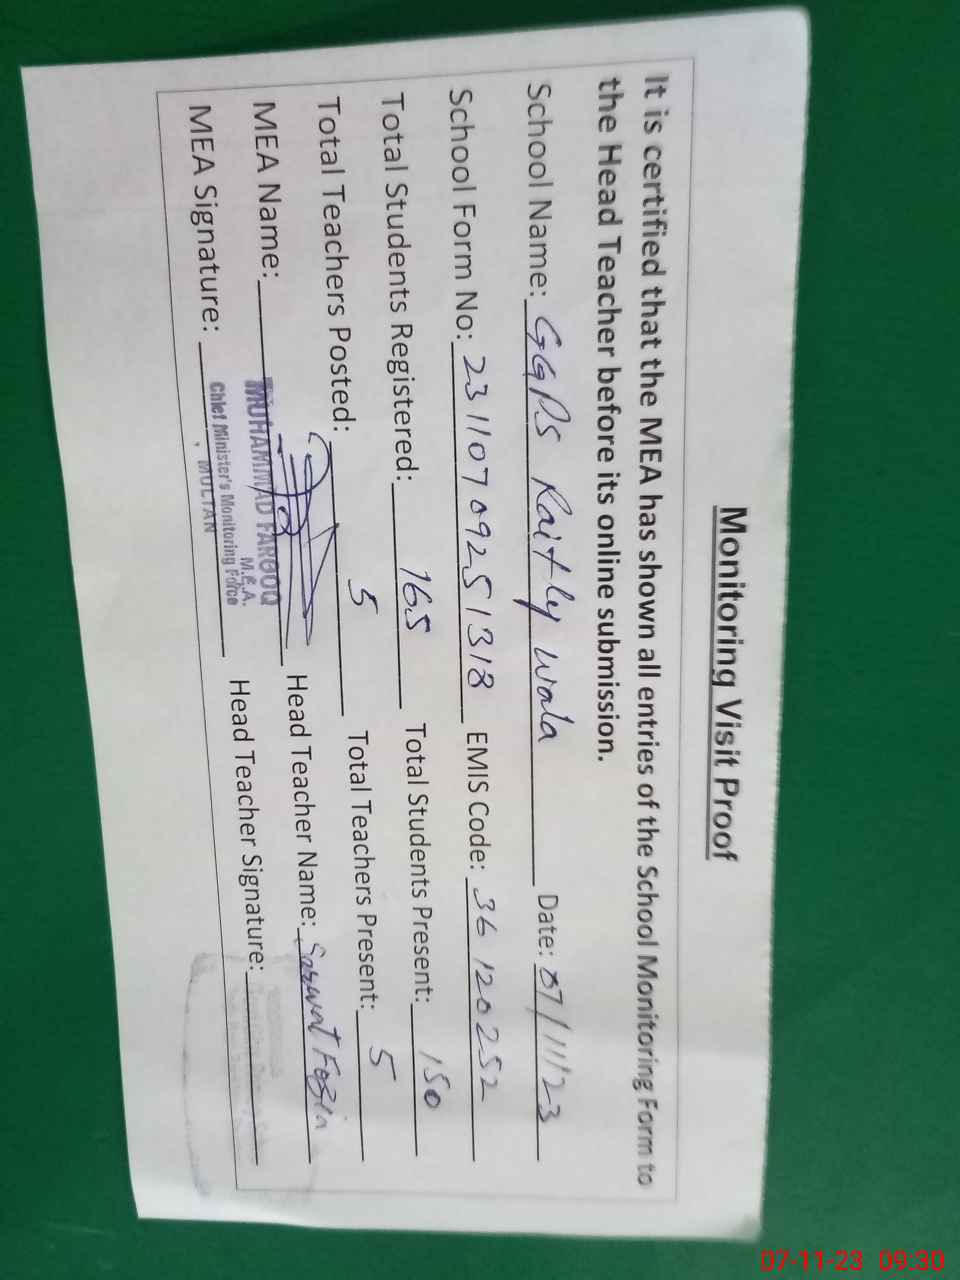 Monitoring Visit Proof
It is certified that the MEA has shown all entries of the School Monitoring Form to
the Head Teacher before its online submission.
School Name: GGPS Raitly wala Date: 07/11/23
School Form No: 231107 09251318 EMIS Code: 36120252
Total Students Registered: 165 Total Students Present: 150
Total Teachers Posted: 5 Total Teachers Present: 5
MEA Name: MUHAMMAD FAROOQ Head Teacher Name: Sarwat Fozia
M.E.A.
MEA Signature: Chief Minister's Monitoring Force Head Teacher Signature:
MULTAN
07-11-23 09:30